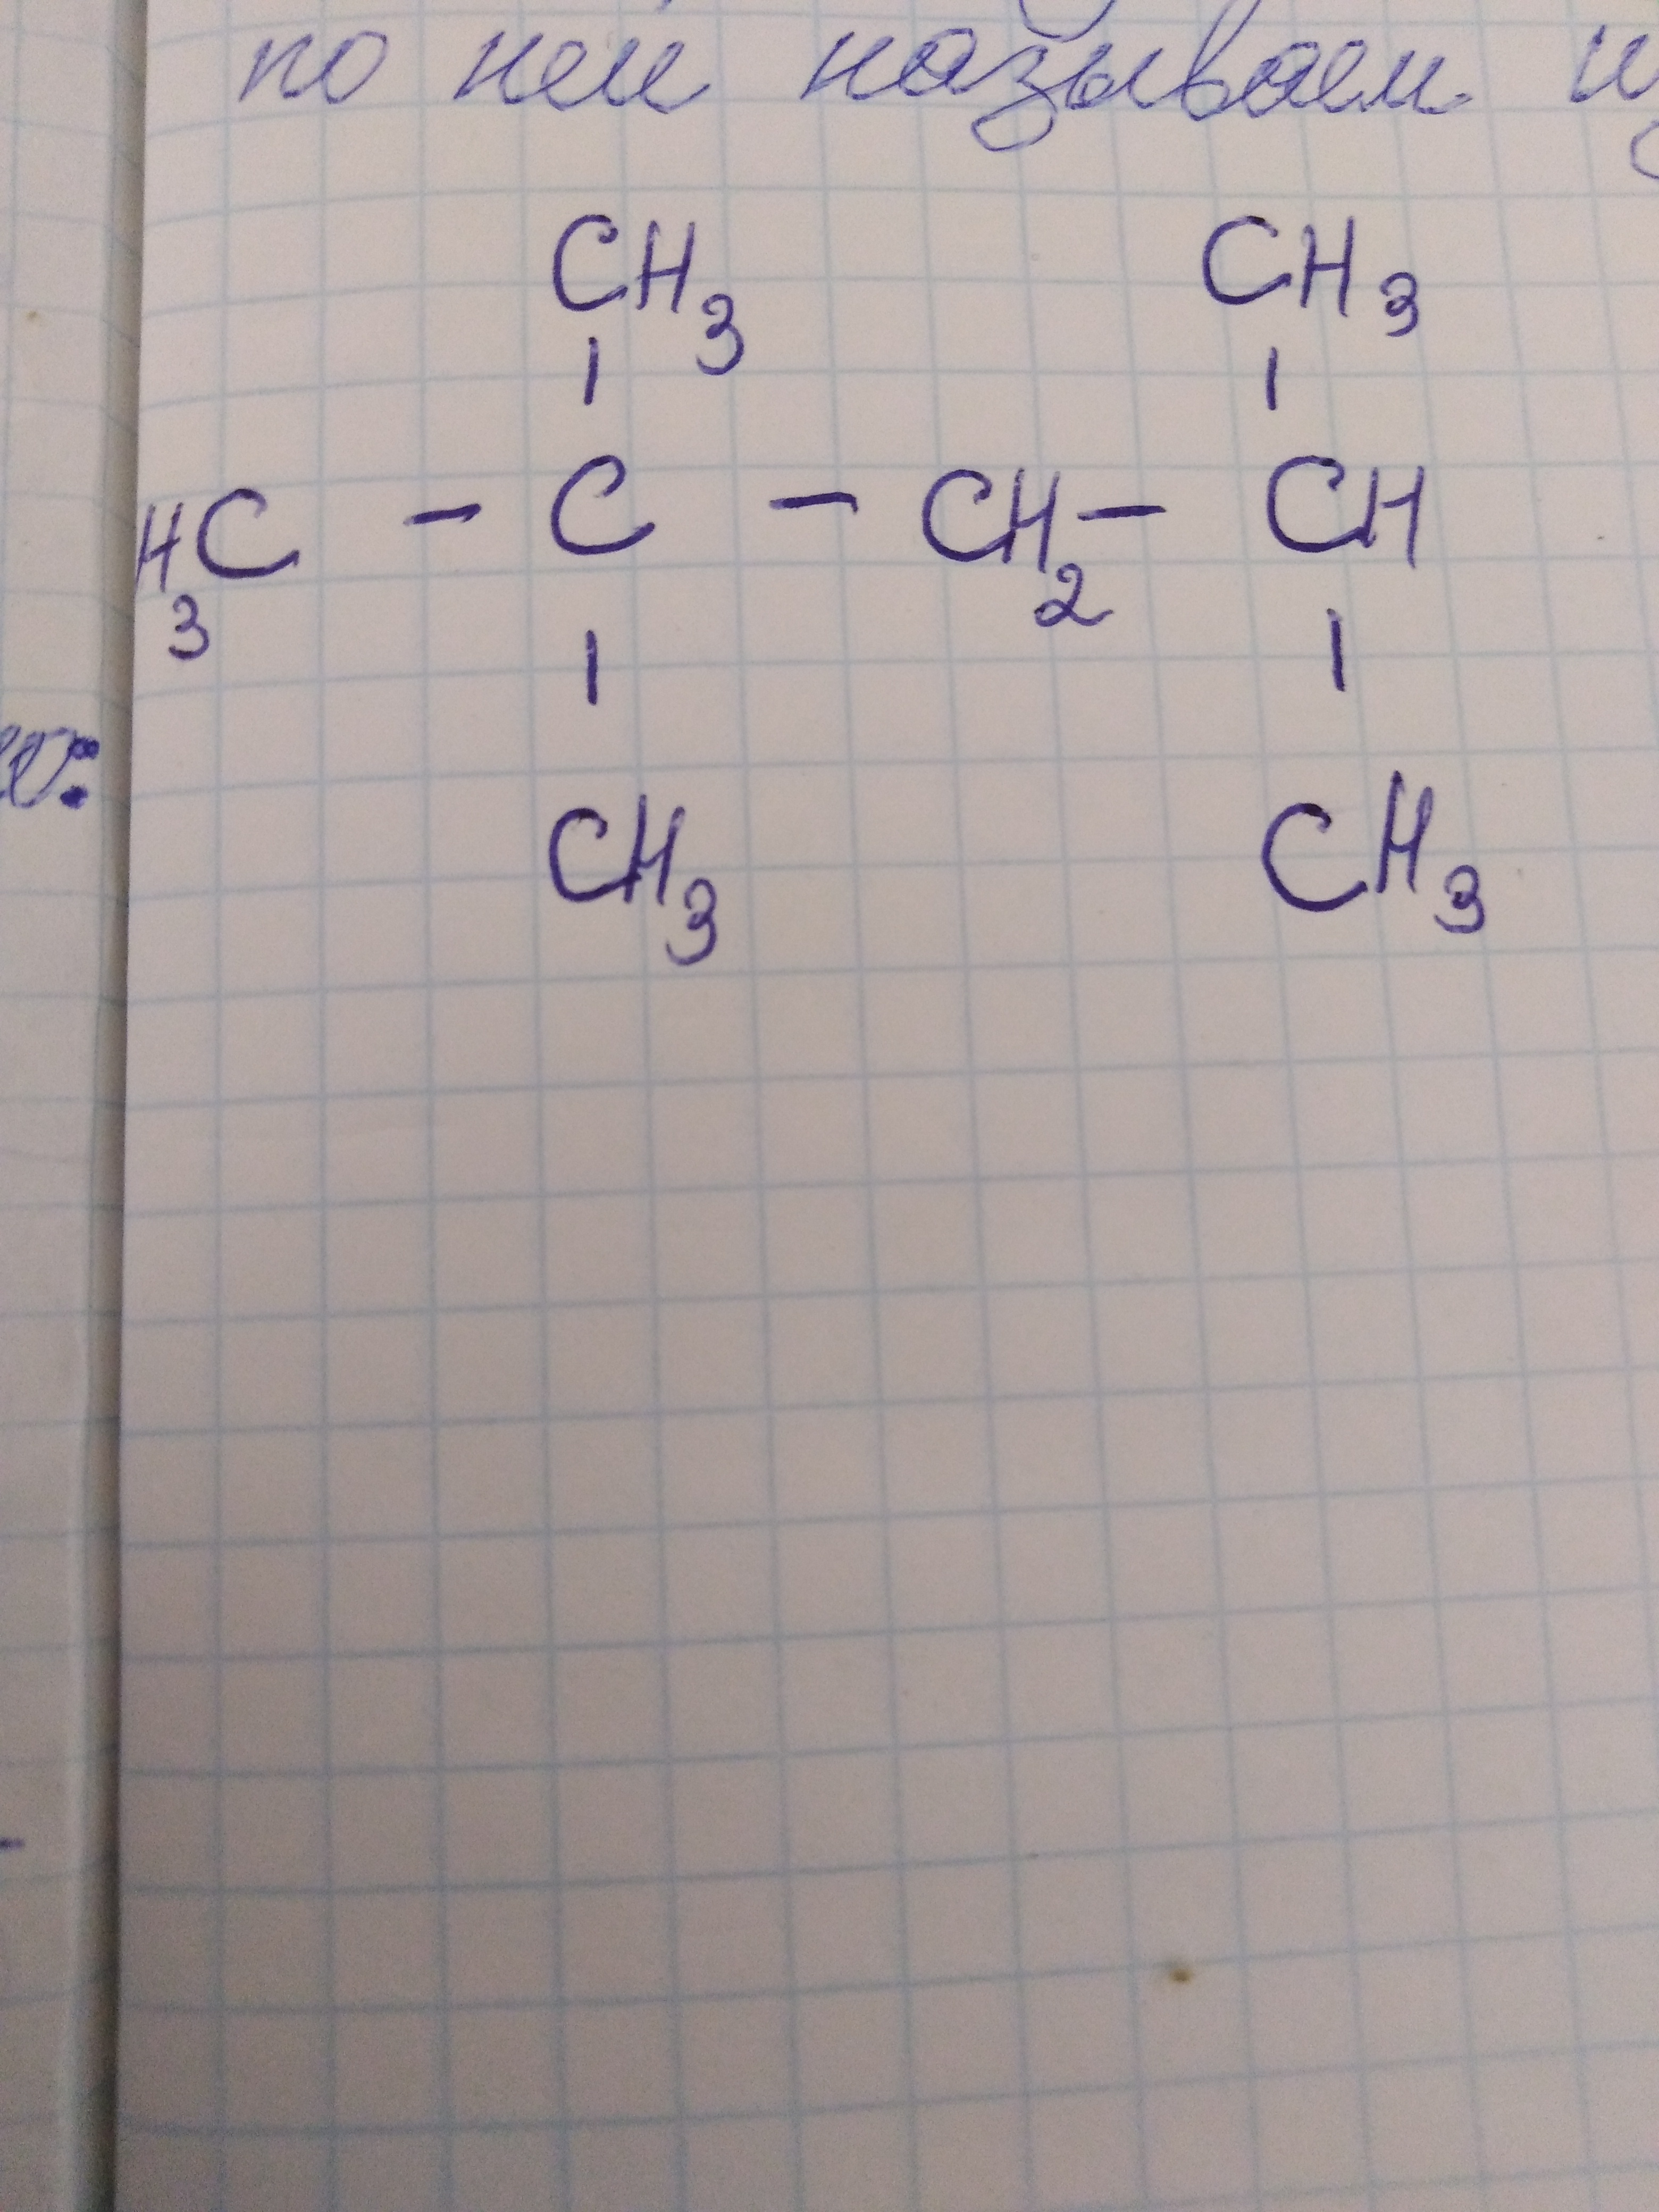 по ней называем
CH3 CH3
| |
H3C - C - CH2 - CH
| |
CH3 CH3